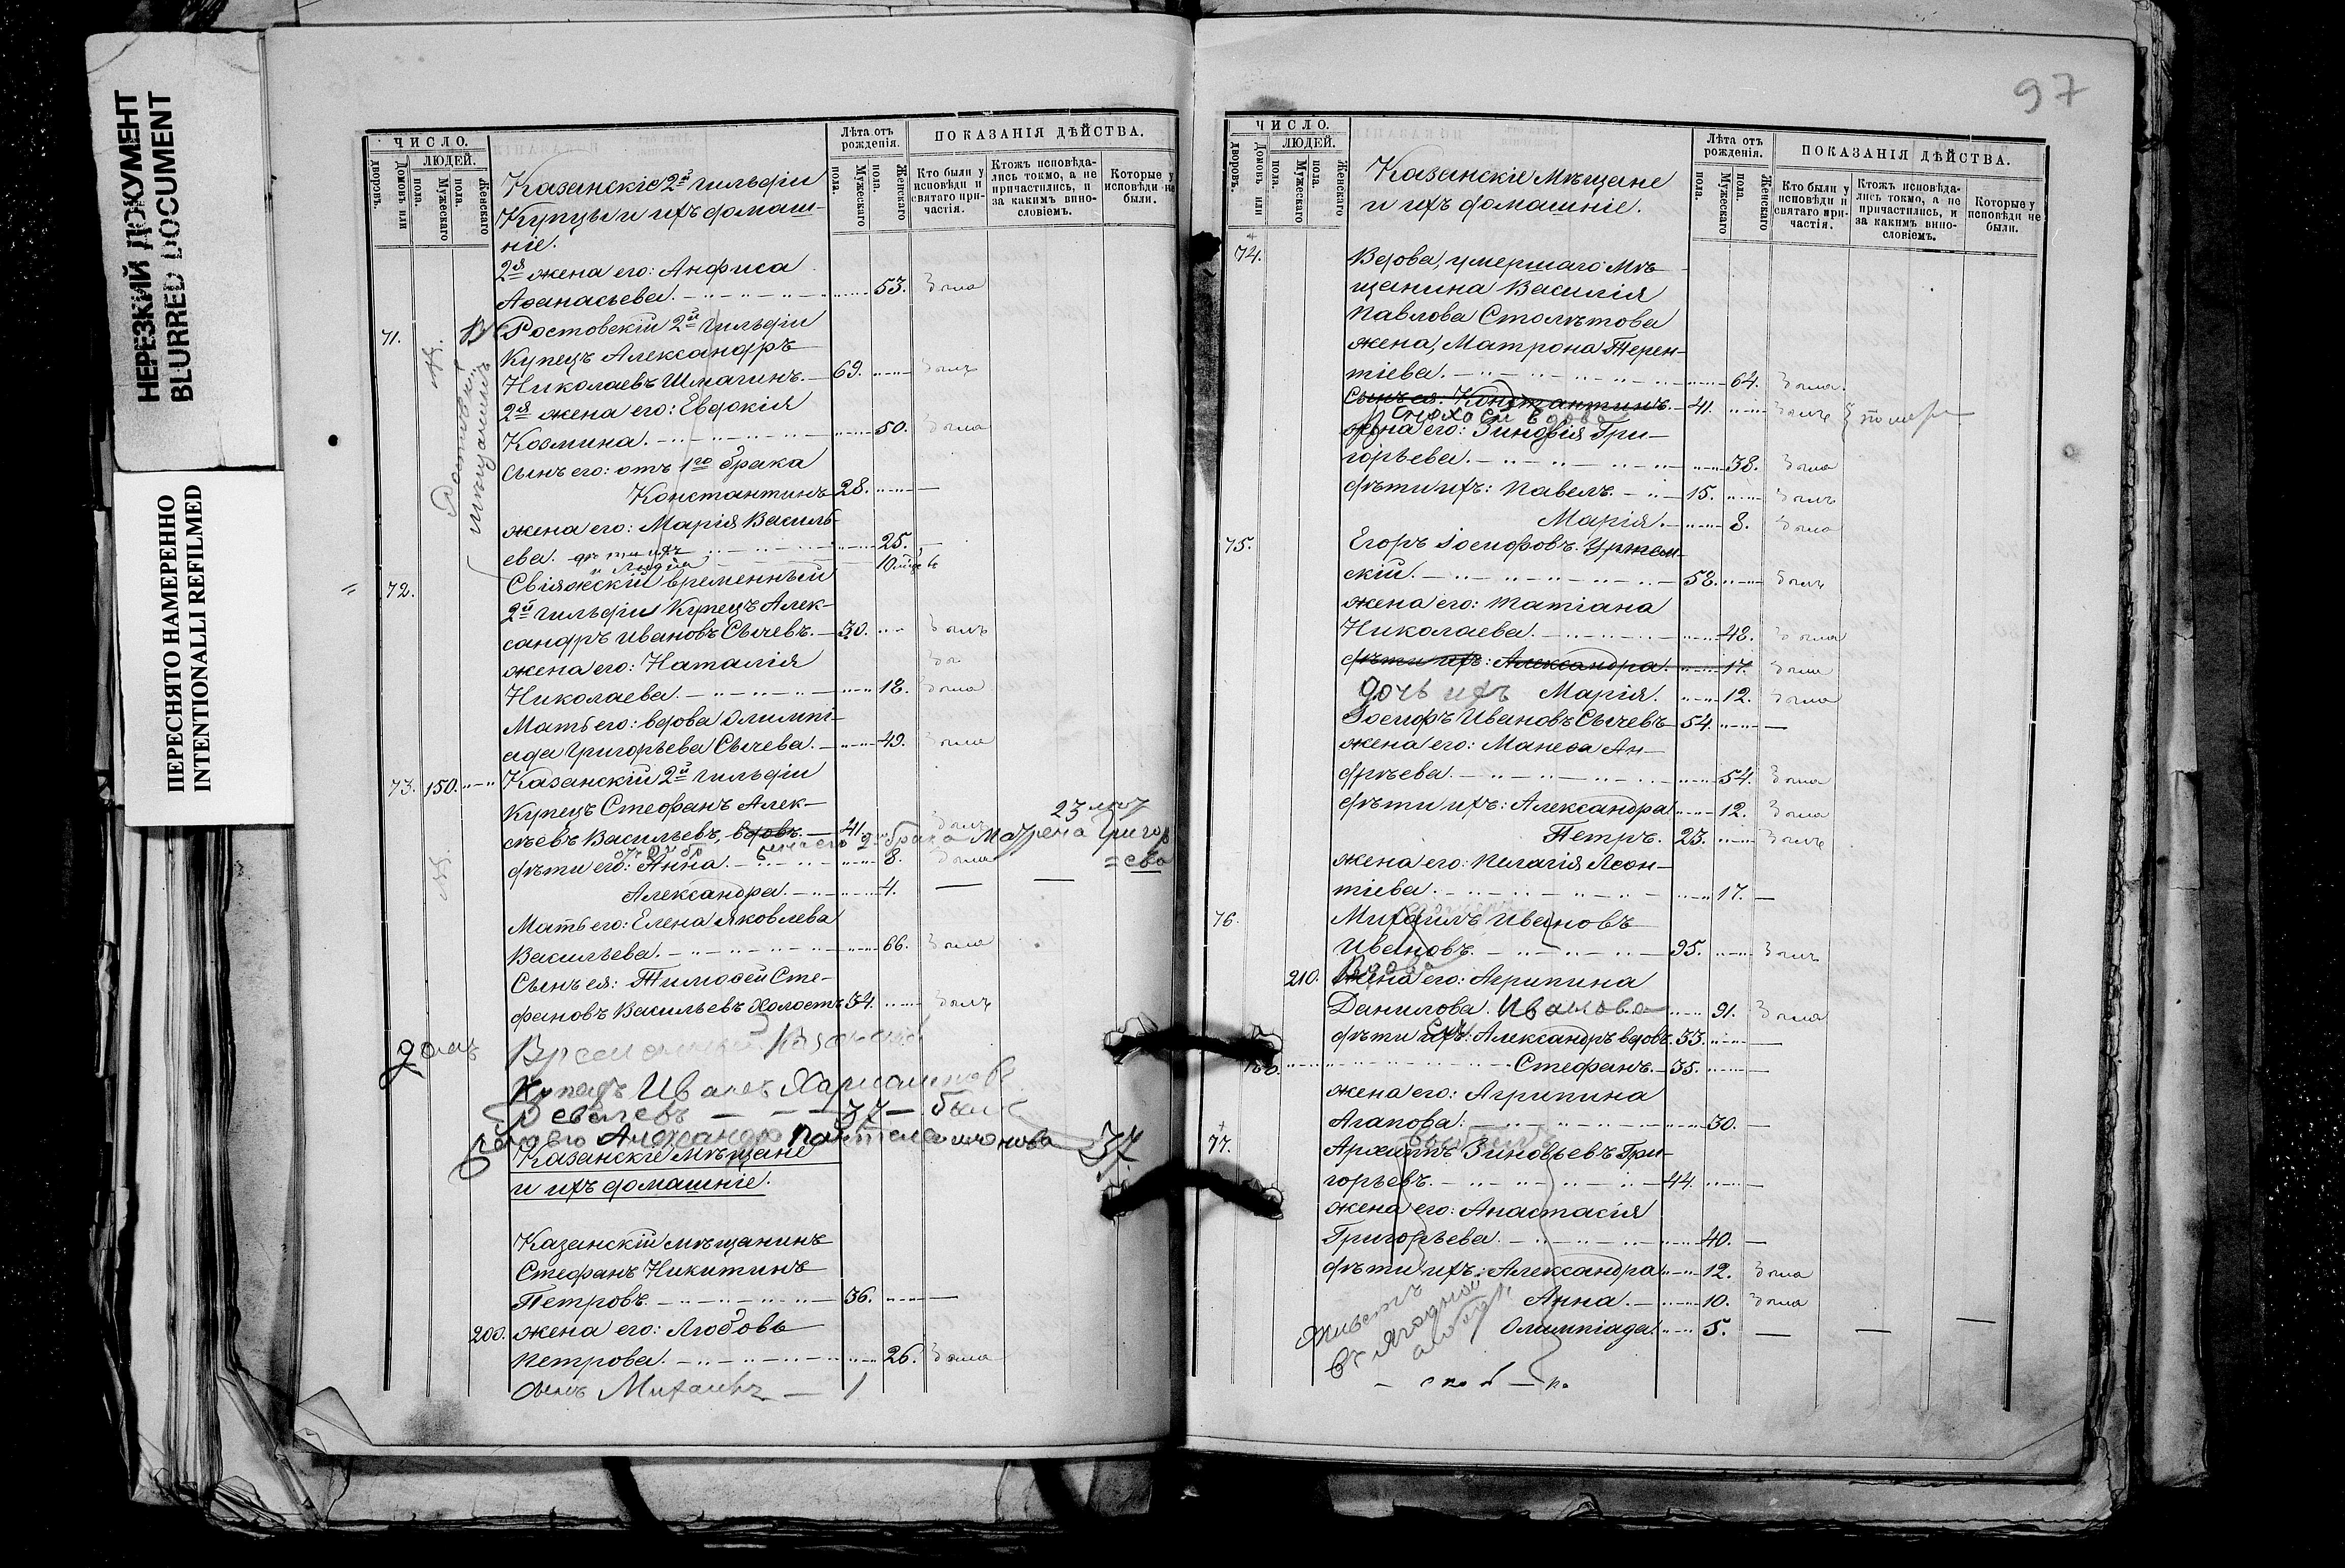 НЕРЕЗКИЙ ДОКУМЕНТ
BLURRED DOCUMENT
ПЕРЕСНЯТО НАМЕРЕННО
INTENTIONALLI REFILMED
ЧИСЛО.
Дворовъ. Домовъ или
ЛЮДЕЙ.
Мужескаго пола. Женскаго пола.
Лѣта отъ рожденія.
Мужескаго пола. Женскаго пола.
ПОКАЗАНІЯ ДѢЙСТВА.
Кто были у исповѣди и святаго причастія.
Ктожъ исповѣдались токмо, а не причастились, и за какимъ винословіемъ.
Которые у исповѣди не были.
Казанскіе 2й гильдіи
Купцы и ихъ домаш-
ніе.
2я жена его: Анфиса
Аѳанасьева. 53. была
71. Ростовскій 2й гильдіи
Купецъ Александръ
Николаевъ Шмагинъ. 69. былъ
2я жена его: Евдокія
Козмина. 50. была
Сынъ его: отъ 1го брака
Константинъ 28. —
жена его: Марія Василь-
ева. дѣти ихъ 25. —
и Лидія 10
Ростовскій
мѣщанинъ
72. Свіяжскій временный
2й гильдіи Купецъ Алек-
сандръ Ивановъ Сычевъ. 30. былъ
жена его: Наталія
Николаева. 18. была
Мать его: вдова Олимпі-
ада Григорьева Сычева. 49. была
73. 150. Казанскій 2й гильдіи
Купецъ Стефанъ Алек-
сѣевъ Васильевъ, вдовъ. 41. былъ
2 брака Матрена Григор
=ева
23
дѣти его: Анна. 8. была
Александра. 4. — —
Мать его: Елена Яковлева
Васильева. 66. была
Сынъ ея: Тимоѳей Сте-
фановъ Васильевъ холостъ 34. былъ
домъ Временный Казанскій
Купецъ Иванъ Харитоновъ
37 — былъ
жена его Александра Пантелеимонова 37
Казанскіе Мѣщане
и ихъ домашніе.
Казанскій мѣщанинъ
Стефанъ Никитинъ
Петровъ. 36. —
200. жена его: Любовь
Петрова. 26. была
сынъ Михаилъ — 1
97
ЧИСЛО.
Дворовъ. Домовъ или
ЛЮДЕЙ.
Мужескаго пола. Женскаго пола.
Лѣта отъ рожденія.
Мужескаго пола. Женскаго пола.
ПОКАЗАНІЯ ДѢЙСТВА.
Кто были у исповѣди и святаго причастія.
Ктожъ исповѣдались токмо, а не причастились, и за какимъ винословіемъ.
Которые у исповѣди не были.
Казанскіе Мѣщане
и ихъ домашніе.
74. Вдова, умершаго мѣ-
щанина Василія
Павлова Столѣтова
жена, Матрона Терен-
тіева. 64. была.
Сынъ ея: Константинъ. 41. былъ помер
Сноха ей вдова
жена его: Зиновія Гри-
горьева. 38. была
дѣти ихъ: Павелъ. 15. былъ
Марія. 8. была
75. Егоръ Іосифовъ Уржем-
скій. 58. былъ
жена его: Татіана
Николаева. 48. была
дѣти ихъ: Александра. 17. была
дочь ихъ Марія. 12. была
Іосифъ Ивановъ Сычевъ 54. —
жена его: Манеѳа Ан-
дрѣева. 54. была
дѣти ихъ: Александра 12. была
Петръ. 23. былъ
жена его: Пелагія Леон-
тіева. 17. —
76. Михаилъ Ивановъ
Ивановъ. 95. былъ
Вдова
210. жена его: Агрипина
Данилова. Иванова 91. была
дѣти ихъ: Александръ вдовъ. 53. —
Стефанъ. 35. —
жена его: Агрипина
Агапова. 30. —
77. Архиппъ Зиновьевъ Гри-
горьевъ. 44. —
жена его: Анастасія
Григорьева. 40. —
дѣти ихъ: Александра 12. была
Анна. 10. была
Олимпіада. 5. — — —
Живетъ
въ Ягодной
слобод.